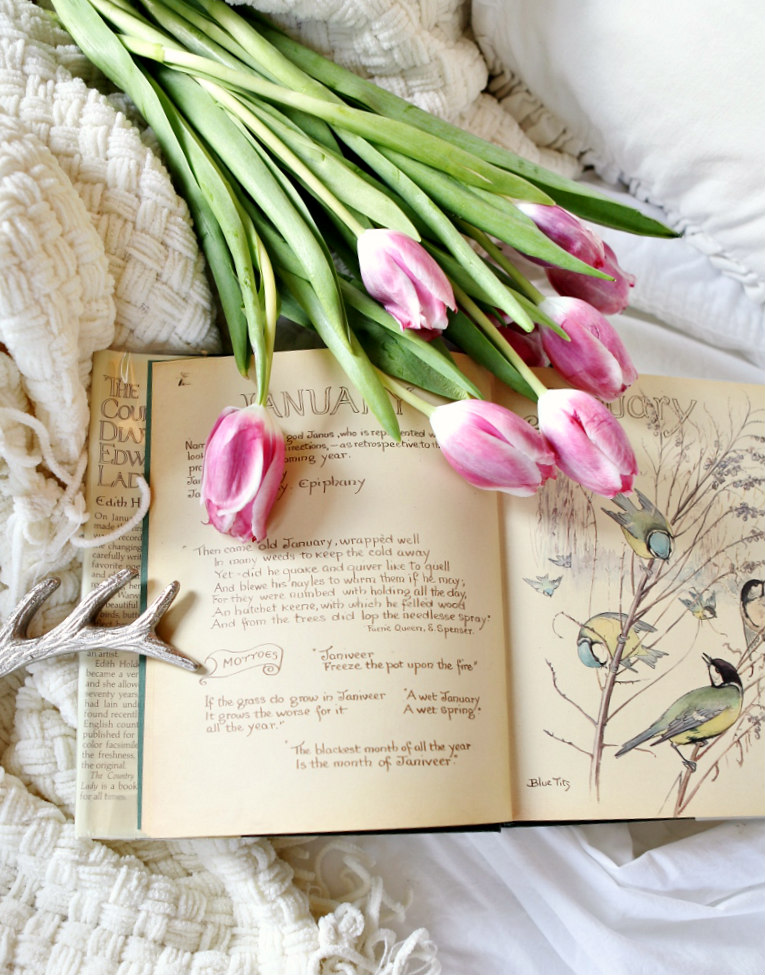 THE
COU
DIA
EDW
LAD
Edith H
On Janua
made th
the changing
carefully writ
favorite po
and
her
Warw
beautiful
birds, but
an artist.
Edith Hold
became a ver
and she allow
seventy years
had lain und
found recent
English count
published for
color facsimile
the freshness,
the original.
The Country
Lady is a book
for all times.
JANUARY
Nam god Janus, who is represented w
look irections, — as retrospective to th
pr oming year.
Jan
Jan y. Epiphany
"Then came old January, wrapped well
In many weeds to keep the cold away
Yet did he quake and quiver like to quell
And blewe his nayles to warm them if he may;
For they were numbed with holding all the day,
An hatchet keene, with which he felled wood
And from the trees did lop the needlesse spray."
Faerie Queen, E. Spenser.
MOTTOES
"Janiveer
Freeze the pot upon the fire"
If the grass do grow in Janiveer
It grows the worse for it
all the year."
"A wet January
A wet Spring."
"The blackest month of all the year
Is the month of Janiveer."
uary
Blue Tits